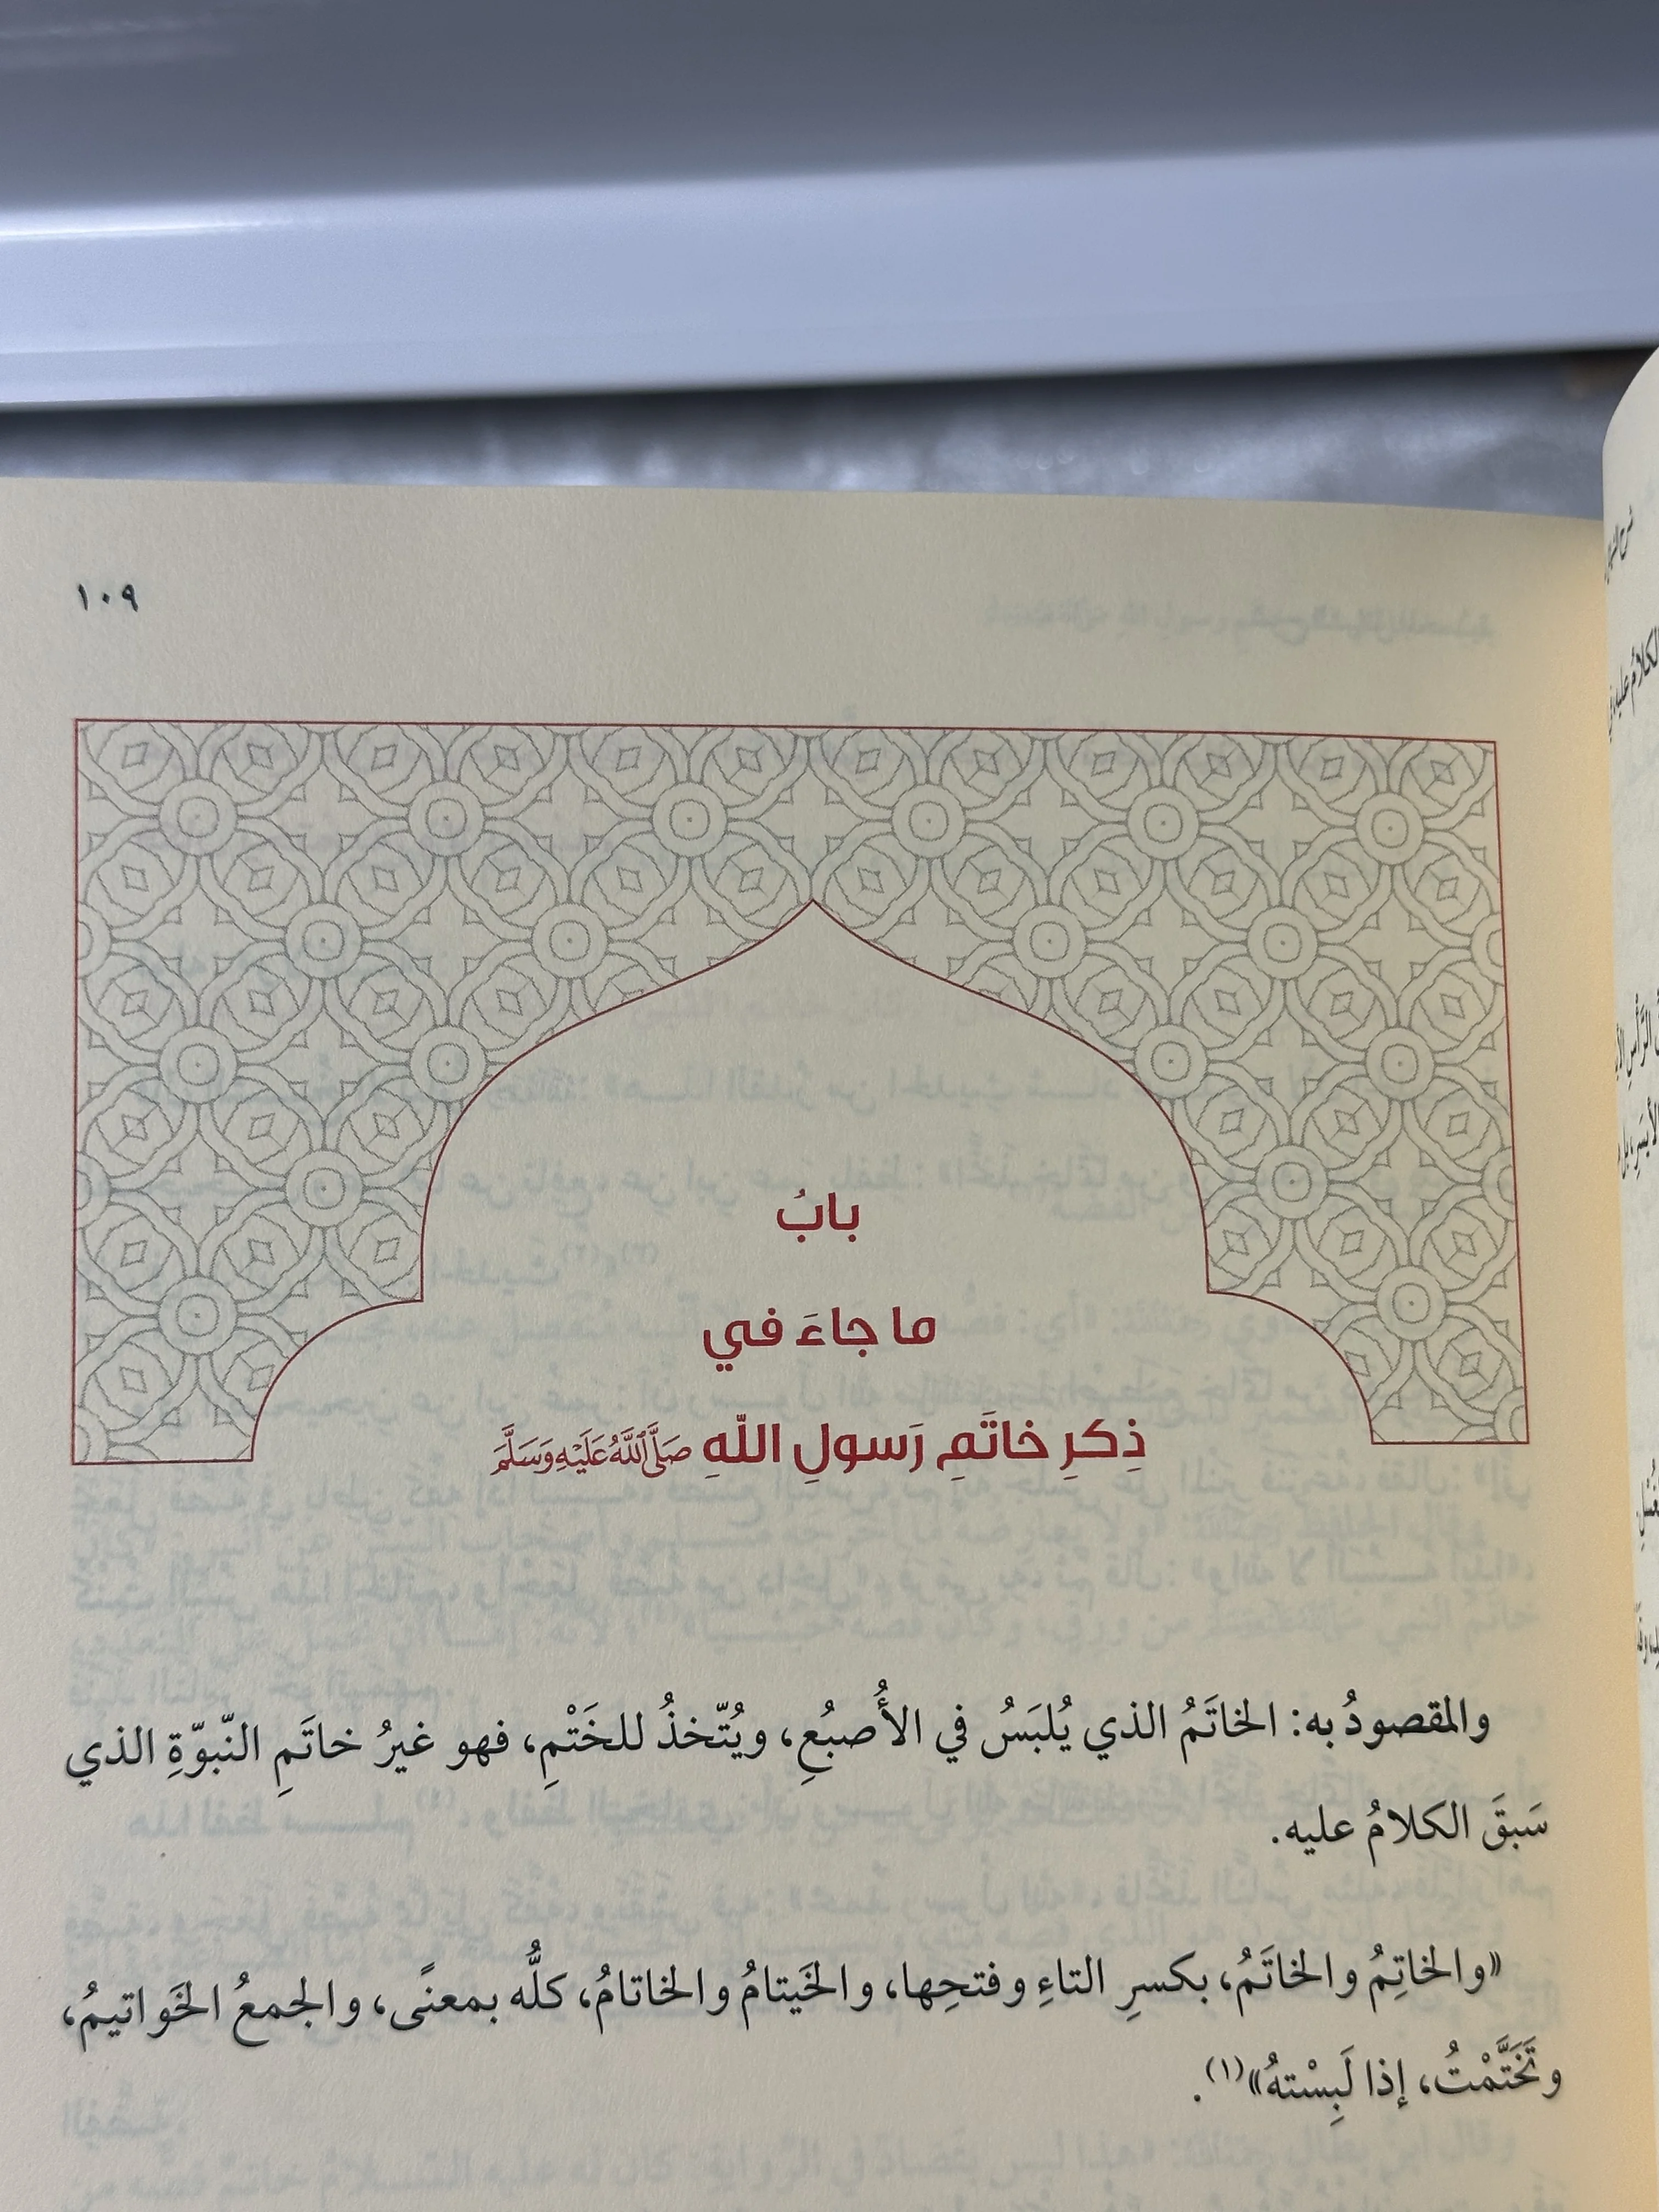 ١٠٩
بابُ
ما جاءَ في
ذِكرِ خاتَمِ رَسولِ اللّهِ صَلَّى اللَّهُ عَلَيْهِ وَسَلَّمَ
والمقصودُ به: الخاتَمُ الذي يُلبَسُ في الأُصبُعِ، ويُتّخذُ للخَتْمِ، فهو غيرُ خاتَمِ النّبوّةِ الذي
سَبقَ الكلامُ عليه.
«والخاتِمُ والخاتَمُ، بكسرِ التاءِ وفتحِها، والخَيتامُ والخاتامُ، كلُّه بمعنًى، والجمعُ الخَواتيمُ،
وتَخَتَّمْتُ، إذا لَبِسْتهُ»(١).